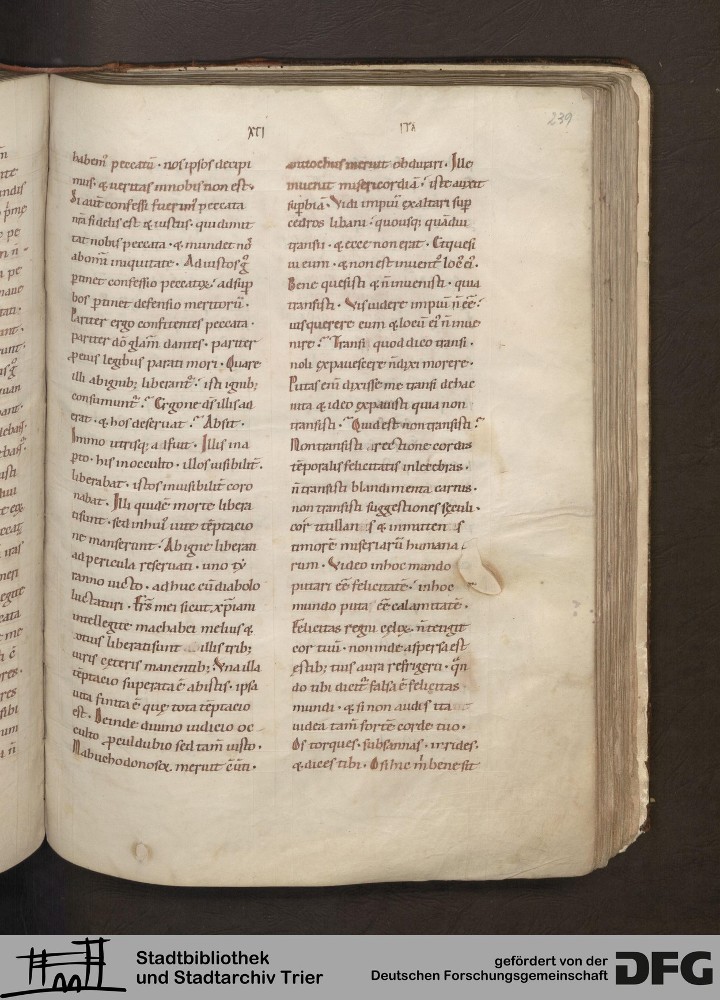 239
habem᷒ peccatū · nos ipsos decipi
mus · & ueritas in nobis non est ·
Si aut̄ confessi fuerim᷒ peccata
nr̄a fidelis est & iustus · qui dimit
tat nobis peccata · & mundet nos
ab om̄i iniquitate · Ad iustos g̊
ꝑtinet confessio peccatoꝝ · ad suꝑ
bos ꝑtinet defensio meritorū ·
Pariter ergo confitentes peccata ·
pariter dō glam̄ dantes · pariter
ꝓ eius legibus parati mori · Quare
illi ab ignib; liberant᷑ · isti ignib;
consumunt᷑ · Ergone dŝ illis ad
erat · & hos deseruat · Absit ·
Immo utrisq; adfuit · Illis in a
ꝑto · his in occulto · illos uisibilit᷑ ·
liberabat · istos inuisibilit᷑ coro
nabat · Illi quidē morte libera
ti sunt · sed in hui᷒ uite tēptacio
ne manserunt · Ab igne liberati
ad pericula reseruati · uno ty
ranno uicto · adhuc cū diabolo
luctaturi · Fr̄s mei sicut xp̄iani
intellegite machabei melius &
totius liberati sunt illis trib;
iuris ceteris manentib; Una illa
tēptacio superata ē ab istis · ipsa
uita finita ē que tota tēptacio
est · Deinde diuino iudicio oc
culto · ꝓcul dubio sed tam̄ iusto ·
Nabuchodonosor meruit
antiochus meruit obdurari · Ille
inuenit misericordiā · iste auxit
suꝑbia · Vidi impiū exaltari suꝑ
cedros libani · quousq; quādiu
transiit · & ecce non erat · Et quesi
ui eum · & non est inuent᷒ loc᷒ ei᷒ ·
Bene quesisti & n̄ inuenisti · quia
transisti · Vis uidere impiū n̄ ēe
uis querere eum & locū ei᷒ n̄ inue
nire · Transi quod dico transi ·
noli expauescere n̄ dixi morere ·
Putas enī dixisse me transi de hac
uita & ideo expauisti quia non
transisti · Quid est non transisti
Non transisti a rectione cordis
tēporalis felicitatis inlecebras ·
n̄ transisti blandimenta carnis ·
non transisti suggestiones sęculi ·
cor titillantis & inmittentis
timorē miseriarū humana
rum · Video in hoc mundo
putari ēe felicitatē · in hoc
mundo puta ēe calamitatē ·
Felicitas regni celoꝝ n̄ tetigit
cor tuū · non inde aspersa est
ęstib; tuis aura refrigerii · qn̄
do tibi dicit᷑ falsa ē felicitas
mundi · & si non audis ita
uidea tam̄ forte corde tuo ·
Os torques · subsannas · irrides ·
& dices tibi · O si hic m̄ bene sit
Stadtbibliothek
und Stadtarchiv Trier
gefördert von der
Deutschen Forschungsgemeinschaft
DFG